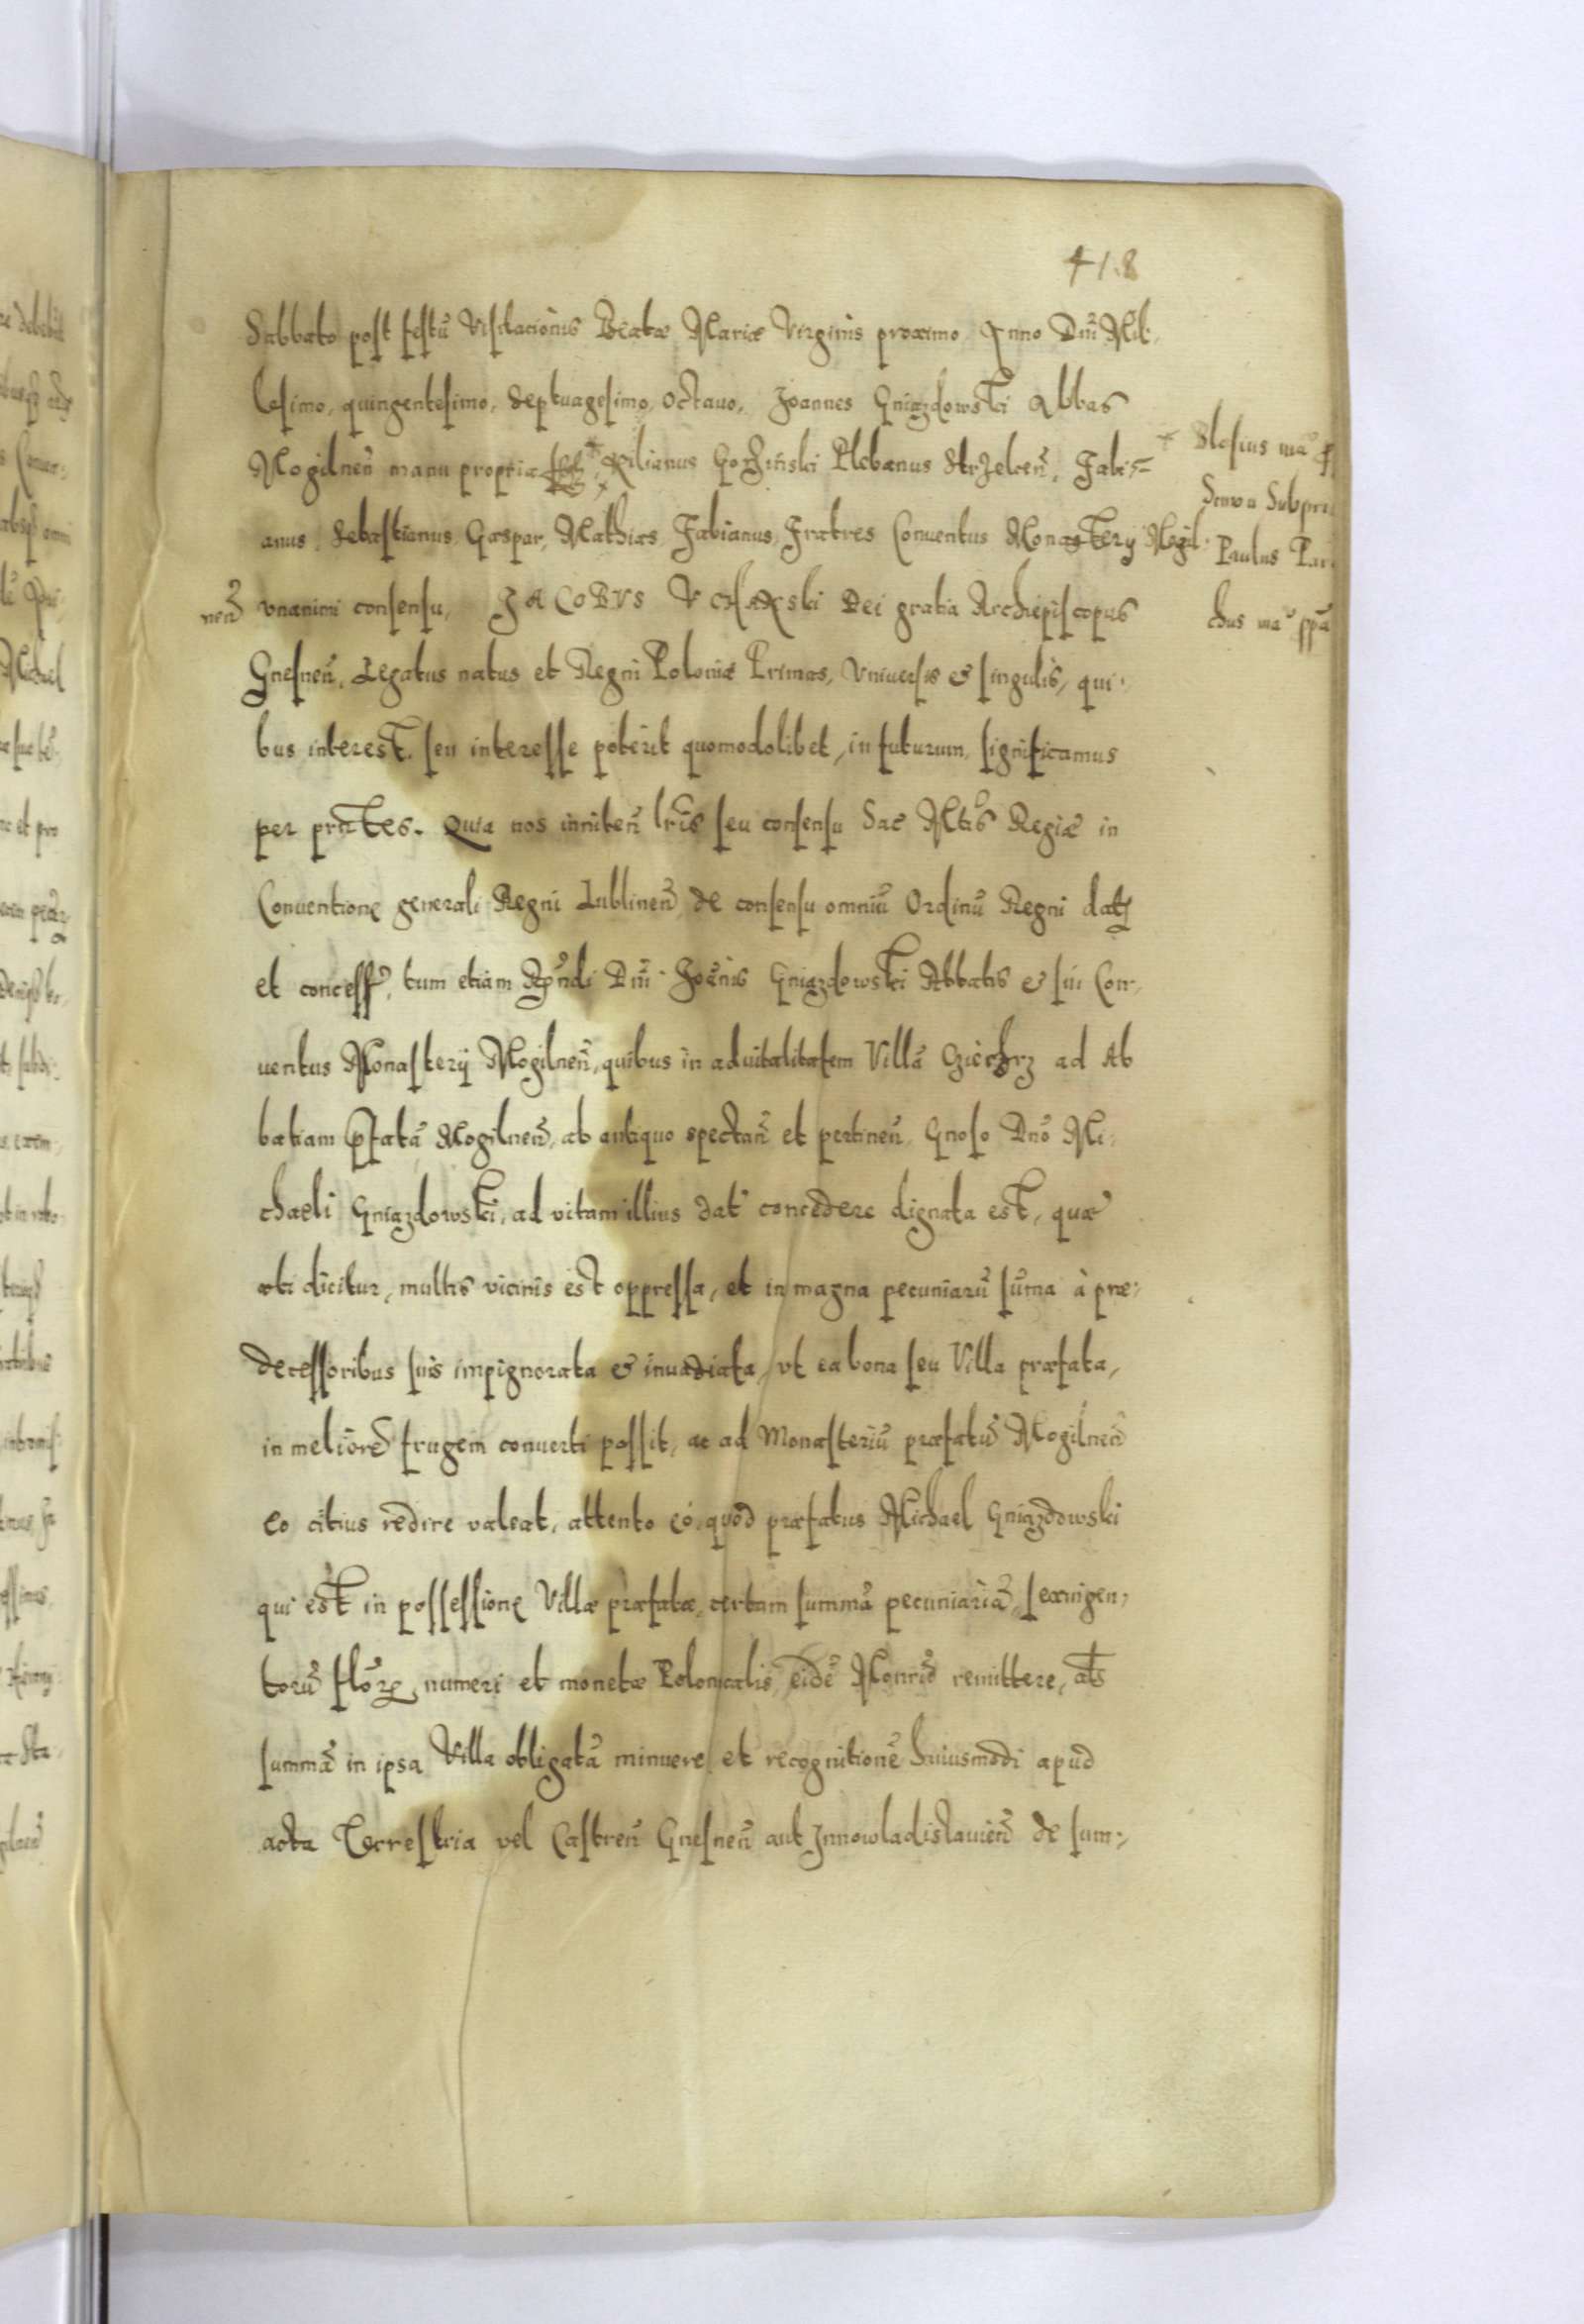 418
Sabbato post festũ Visitacionis Beatæ Mariæ Virginis proximo Anno Dñi Mil-
lesimo, quingentesimo, septuagesimo, octauo, Joannes Gniazdowski Abbas
Mogilneñ manu propria Kilianus Gozinski Plebanus Strzelceñ, Fabi=
anus, Sebastianus, Gaspar, Mathias, Fabianus, Fratres Conuentus Monastery Mogil-
neñ vnanimi consensu, JACOBVS Vchański Dei gratia Archiepiscopus
Gnesneñ, Legatus natus et Regni Poloniæ Primas, Vniuersis & singulis, qui-
bus interest, seu interesse poterit quomodolibet, in futurum, significamus
per pñtes. Quia nos inniteñ lris seu consensu Sac Mtis Regiæ in
Conuentione generali Regni Lublineñ de consensu omniũ Ordinũ Regni dat
et concess, tum etiam Rndi Dñi Joẽnis Gniazdowski Abbatis & sui Con-
uentus Monastery Mogilneñ, quibus in aduitalitatem Villã ad Ab
batiam pfatã Mogilneñ, ab antiquo spectañ et pertineñ, Gnoso Dnõ Mi-
chaeli Gniazdowski, ad vitam illius dat concedere dignata est, quæ
uti dicitur, multis vicinis est oppressa, et in magna pecuniarũ sũma à præ-
decessoribus suis impignorata & inuadiata, vt ea bona seu Villa præfata,
in meliorẽ frugem conuerti possit, ac ad Monasteriũ præfatũ Mogilneñ
eo citius redire valeat, attento eo, quod præfatus Michael Gniazdowski
qui est in possessione Villæ præfatæ, certam summã pecuniariã, sexingen-
torũ flor numeri et monetæ Polonicalis, eidẽ Monriõ remittere, ats
summã in ipsa Villa obligatã minuere, et recognitionẽ huiusmodi apud
acta Terrestria vel Castreñ Gnesneñ aut Jnnowladislauieñ de sum-
Blasius mã
Subpri
Paulus
chus mã ppã